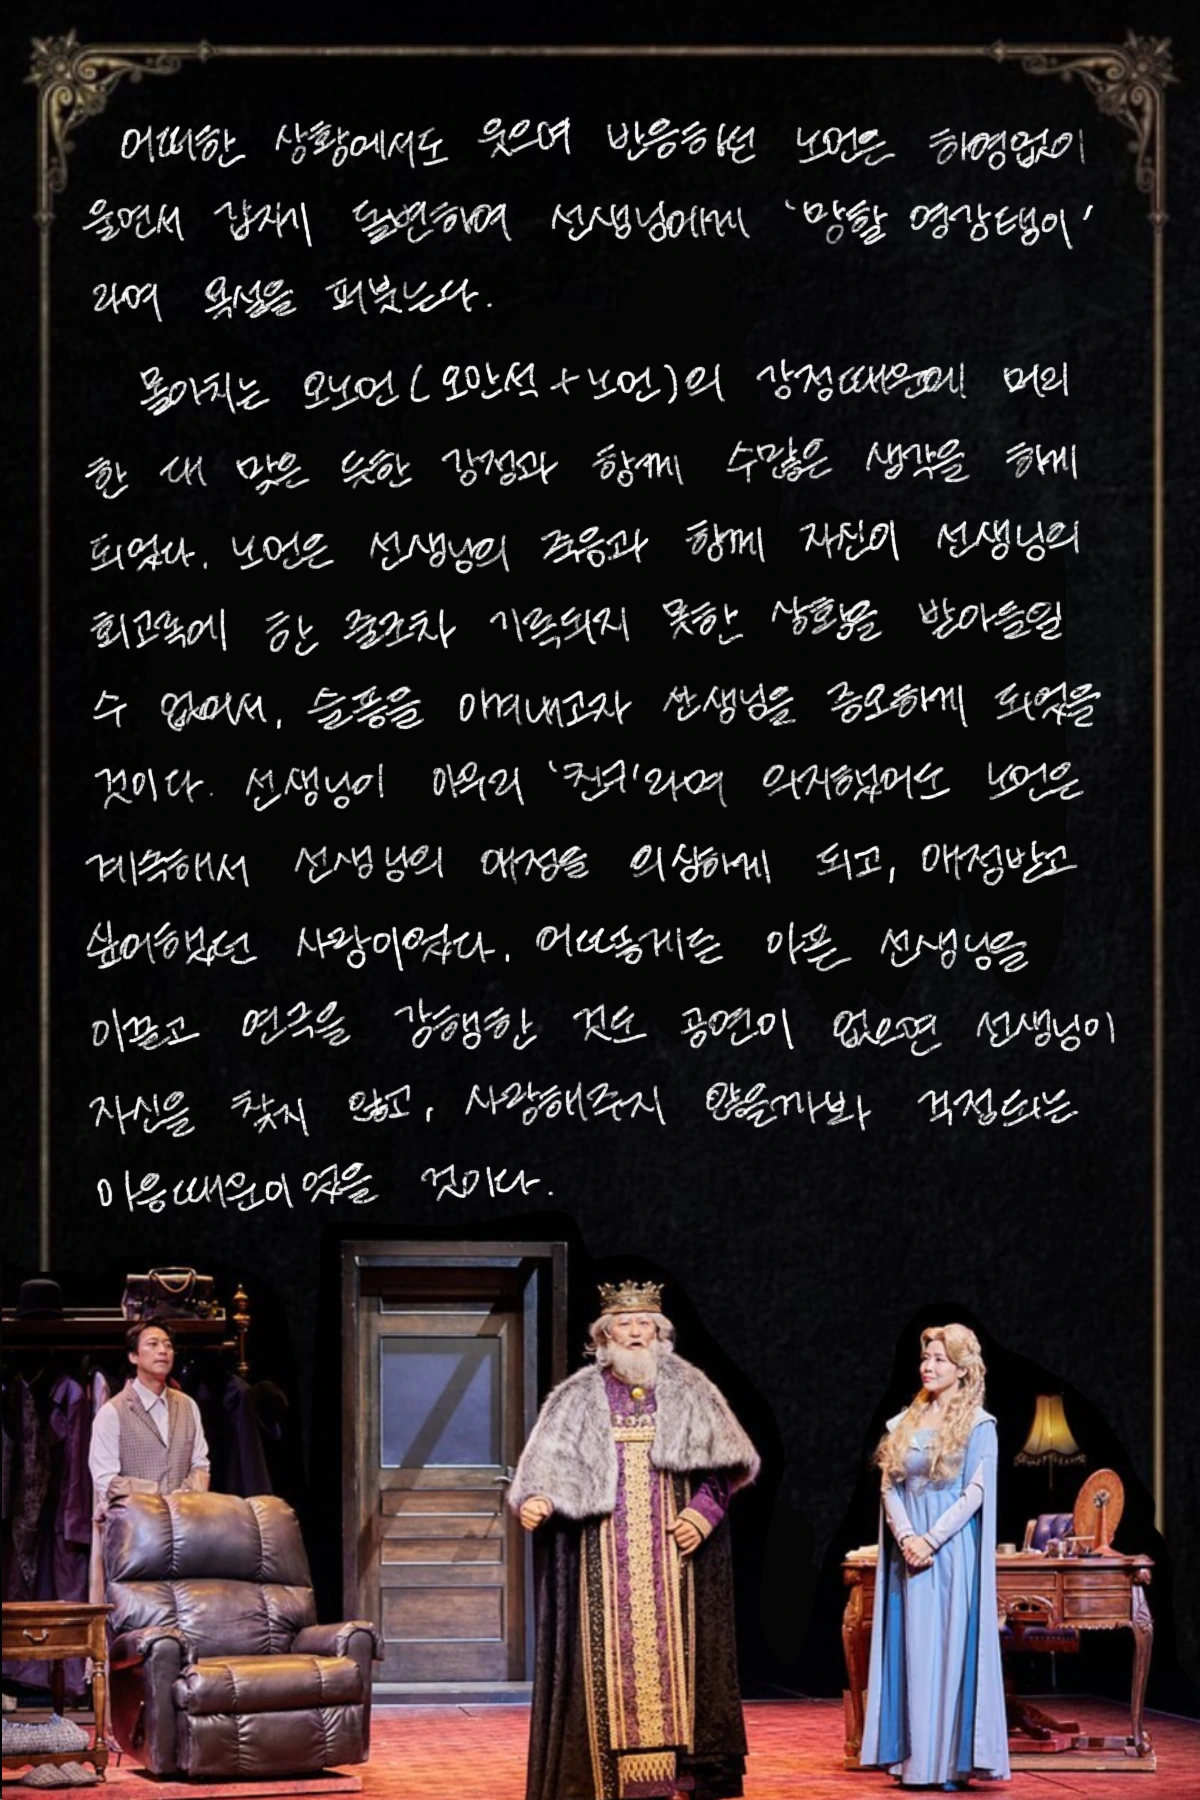 어떠한 상황에서도 웃으며 반응하던 노먼은 하염없이
울면서 갑자기 돌변하여 선생님에게 '망할 영감탱이'
라며 욕설을 퍼붓는다.
몰아치는 오노먼(오만석+노먼)의 감정때문에 머리
한 대 맞은 듯한 감정과 함께 수많은 생각을 하게
되었다. 노먼은 선생님의 죽음과 함께 자신이 선생님의
회고록에 한 줄조차 기록되지 못한 상황을 받아들일
수 없어서, 슬픔을 이겨내고자 선생님을 증오하게 되었을
것이다. 선생님이 아무리 '친구'라며 의지했어도 노먼은
계속해서 선생님의 애정을 의심하게 되고, 애정받고
싶어했던 사람이었다. 어떻게든 아픈 선생님을
이끌고 연극을 강행한 것도 공연이 없으면 선생님이
자신을 찾지 않고, 사랑해주지 않을까봐 걱정되는
마음때문이었을 것이다.